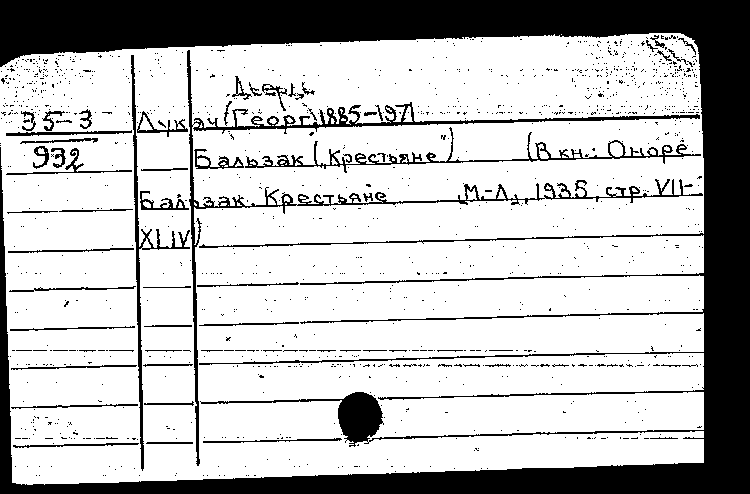 Дьердь
35-3 Лукач (Георг) 1885-1971
932 Бальзак („Крестьяне"). (В кн.: Оноре
Бальзак. Крестьяне М.-Л., 1935, стр. VII-
XLIV).